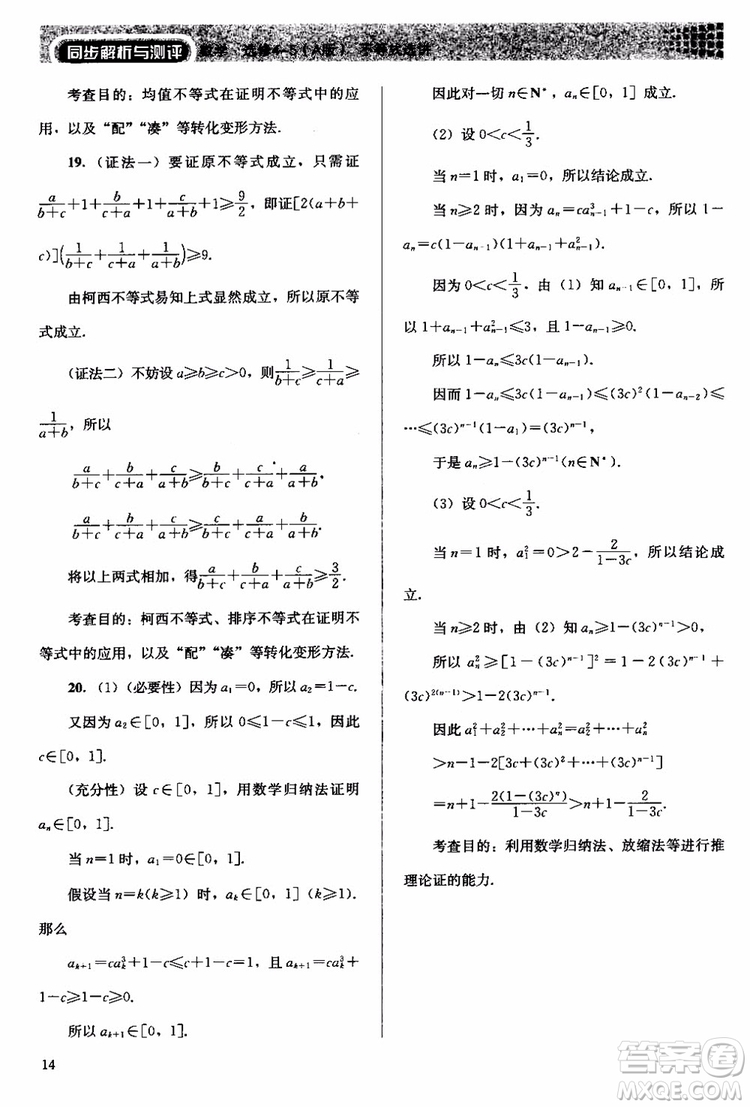 同步解析与测评 数学 选修4-5（A版） 不等式选讲
考查目的：均值不等式在证明不等式中的应
用，以及“配”“凑”等转化变形方法.
19.（证法一）要证原不等式成立，只需证
a/(b+c)+1+b/(c+a)+1+c/(a+b)+1≥9/2，即证[2(a+b+
c)](1/(b+c)+1/(c+a)+1/(a+b))≥9.
由柯西不等式易知上式显然成立，所以原不等
式成立.
（证法二）不妨设 a≥b≥c>0，则1/(b+c)≥1/(c+a)≥
1/(a+b)，所以
a/(b+c)+b/(c+a)+c/(a+b)≥b/(b+c)+c/(c+a)+a/(a+b).
a/(b+c)+b/(c+a)+c/(a+b)≥c/(b+c)+a/(c+a)+b/(a+b).
将以上两式相加，得a/(b+c)+b/(c+a)+c/(a+b)≥3/2.
考查目的：柯西不等式、排序不等式在证明不
等式中的应用，以及“配”“凑”等转化变形方法.
20.（1）（必要性）因为 a₁=0，所以 a₂=1-c.
又因为 a₂∈[0，1]，所以 0≤1-c≤1，因此
c∈[0，1].
（充分性）设 c∈[0，1]，用数学归纳法证明
aₙ∈[0，1].
当 n=1 时，a₁=0∈[0，1].
假设当 n=k(k≥1) 时，aₖ∈[0，1].
那么
aₖ₊₁=caₖ³+1-c≤c+1-c=1，且 aₖ₊₁=caₖ³+
1-c≥1-c≥0.
所以 aₖ₊₁∈[0，1].
14
因此对一切 n∈N*，aₙ∈[0，1] 成立.
（2）设 0<c<1/3.
当 n=1 时，a₁=0，所以结论成立.
当 n≥2 时，因为 aₙ=caₙ₋₁³+1-c，所以 1-
aₙ=c(1-aₙ₋₁)(1+aₙ₋₁+aₙ₋₁²).
因为 0<c<1/3，由（1）知 aₙ₋₁∈[0，1]，所
以 1+aₙ₋₁+aₙ₋₁²≤3，且 1-aₙ₋₁≥0.
所以 1-aₙ≤3c(1-aₙ₋₁).
因而 1-aₙ≤3c(1-aₙ₋₁)≤(3c)²(1-aₙ₋₂)≤
…≤(3c)ⁿ⁻¹(1-a₁)=(3c)ⁿ⁻¹.
于是 aₙ≥1-(3c)ⁿ⁻¹(n∈N*).
（3）设 0<c<1/3.
当 n=1 时，a₁²=0>2-2/(1-3c)，所以结论成
立.
当 n≥2 时，由（2）知 aₙ≥1-(3c)ⁿ⁻¹>0，
所以 aₙ²≥[1-(3c)ⁿ⁻¹]²=1-2(3c)ⁿ⁻¹+
(3c)²⁽ⁿ⁻¹⁾>1-2(3c)ⁿ⁻¹.
因此 a₁²+a₂²+…+aₙ²=a₂²+…+aₙ²
>n-1-2[3c+(3c)²+…+(3c)ⁿ⁻¹]
=n+1-2(1-(3c)ⁿ)/(1-3c)>n+1-2/(1-3c).
考查目的：利用数学归纳法、放缩法等进行推
理论证的能力.
答案圈
MXQE.COM